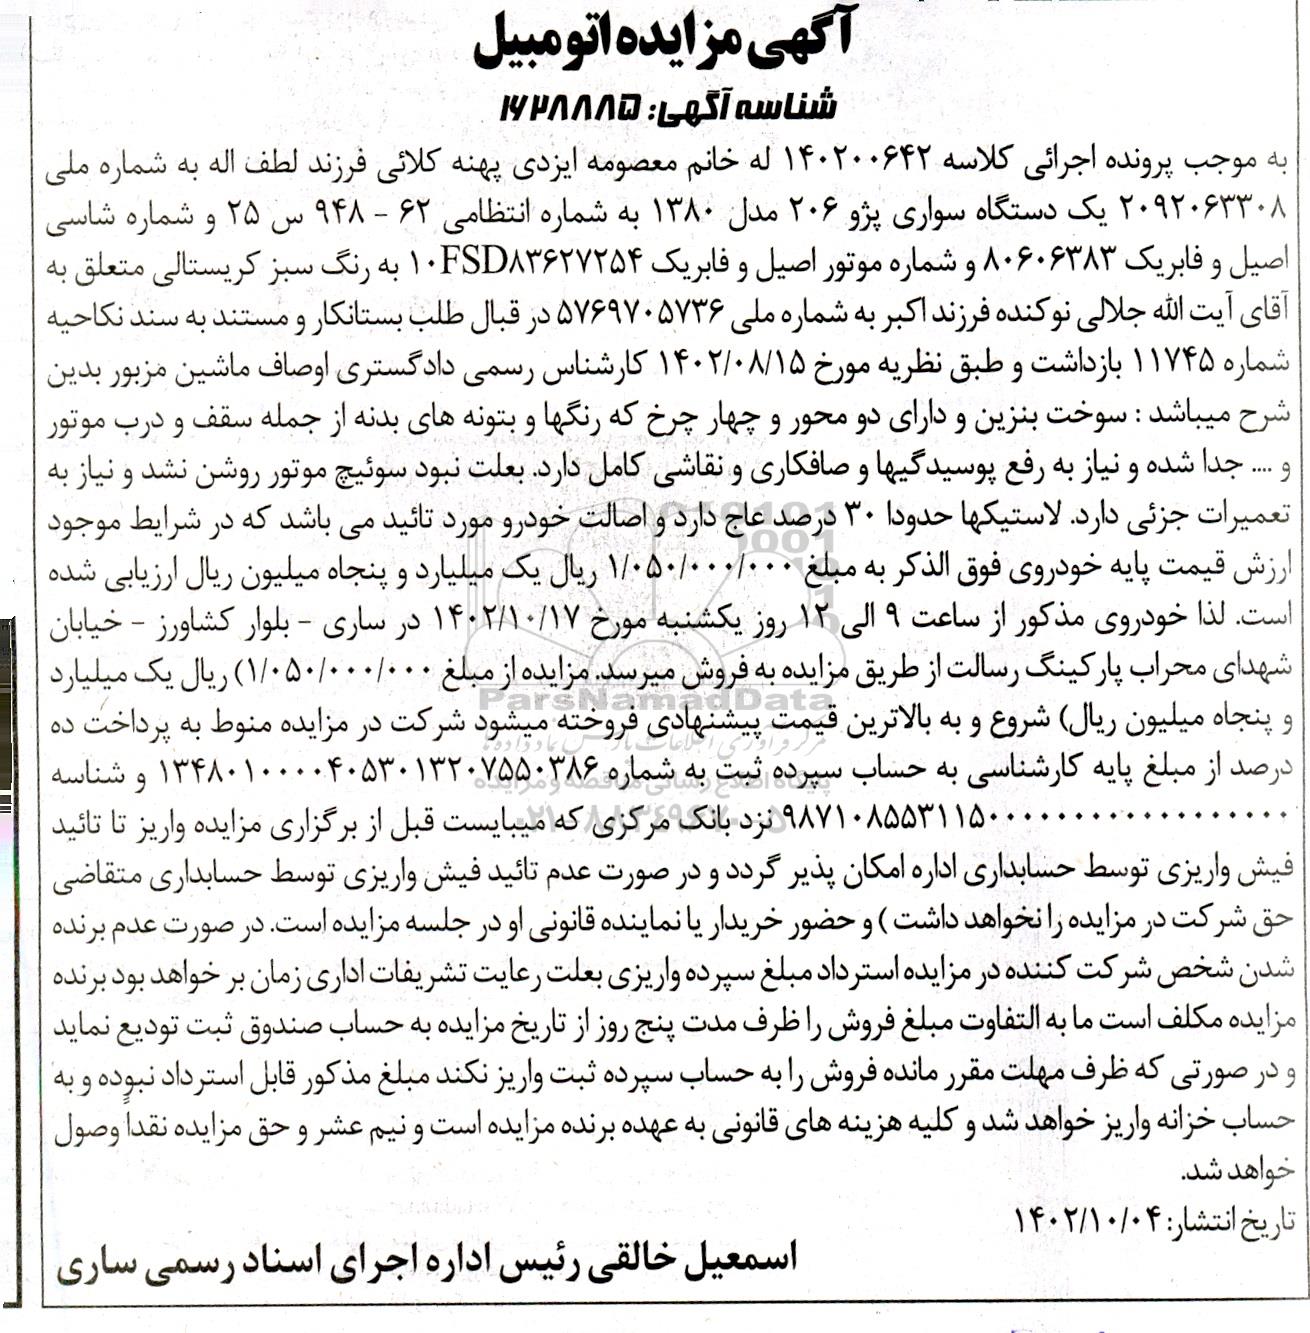 آگهی مزایده اتومبیل
شناسه آگهی: ۱۶۲۸۸۸۵
به موجب پرونده اجرائی کلاسه ۱۴۰۲۰۰۶۴۲ له خانم معصومه ایزدی پهنه کلائی فرزند لطف اله به شماره ملی
۲۰۹۲۰۶۳۳۰۸ یک دستگاه سواری پژو ۲۰۶ مدل ۱۳۸۰ به شماره انتظامی ۶۲ - ۹۴۸ س ۲۵ و شماره شاسی
اصیل و فابریک ۸۰۶۰۶۳۸۳ و شماره موتور اصیل و فابریک ۱۰FSD۸۳۶۲۷۲۵۴ به رنگ سبز کریستالی متعلق به
آقای آیت الله جلالی نوکنده فرزند اکبر به شماره ملی ۵۷۶۹۷۰۵۷۳۶ در قبال طلب بستانکار و مستند به سند نکاحیه
شماره ۱۱۷۴۵ بازداشت و طبق نظریه مورخ ۱۴۰۲/۰۸/۱۵ کارشناس رسمی دادگستری اوصاف ماشین مزبور بدین
شرح میباشد : سوخت بنزین و دارای دو محور و چهار چرخ که رنگها و بتونه های بدنه از جمله سقف و درب موتور
و .... جدا شده و نیاز به رفع پوسیدگیها و صافکاری و نقاشی کامل دارد. بعلت نبود سوئیچ موتور روشن نشد و نیاز به
تعمیرات جزئی دارد. لاستیکها حدودا ۳۰ درصد عاج دارد و اصالت خودرو مورد تائید می باشد که در شرایط موجود
ارزش قیمت پایه خودروی فوق الذکر به مبلغ ۱/۰۵۰/۰۰۰/۰۰۰ ریال یک میلیارد و پنجاه میلیون ریال ارزیابی شده
است. لذا خودروی مذکور از ساعت ۹ الی ۱۲ روز یکشنبه مورخ ۱۴۰۲/۱۰/۱۷ در ساری - بلوار کشاورز - خیابان
شهدای محراب پارکینگ رسالت از طریق مزایده به فروش میرسد. مزایده از مبلغ ۱/۰۵۰/۰۰۰/۰۰۰) ریال یک میلیارد
و پنجاه میلیون ریال) شروع و به بالاترین قیمت پیشنهادی فروخته میشود شرکت در مزایده منوط به پرداخت ده
درصد از مبلغ پایه کارشناسی به حساب سپرده ثبت به شماره ۱۳۴۸۰۱۰۰۰۰۴۰۵۳۰۱۳۲۰۷۵۵۰۳۸۶ و شناسه
۹۸۷۱۰۸۵۵۳۱۱۵۰۰۰۰۰۰۰۰۰۰۰۰۰۰۰۰۰۰ نزد بانک مرکزی که میبایست قبل از برگزاری مزایده واریز تا تائید
فیش واریزی توسط حسابداری اداره امکان پذیر گردد و در صورت عدم تائید فیش واریزی توسط حسابداری متقاضی
حق شرکت در مزایده را نخواهد داشت ) و حضور خریدار یا نماینده قانونی او در جلسه مزایده است. در صورت عدم برنده
شدن شخص شرکت کننده در مزایده استرداد مبلغ سپرده واریزی بعلت رعایت تشریفات اداری زمان بر خواهد بود برنده
مزایده مکلف است ما به التفاوت مبلغ فروش را ظرف مدت پنج روز از تاریخ مزایده به حساب صندوق ثبت تودیع نماید
و در صورتی که ظرف مهلت مقرر مانده فروش را به حساب سپرده ثبت واریز نکند مبلغ مذکور قابل استرداد نبوده و به
حساب خزانه واریز خواهد شد و کلیه هزینه های قانونی به عهده برنده مزایده است و نیم عشر و حق مزایده نقداً وصول
خواهد شد.
تاریخ انتشار: ۱۴۰۲/۱۰/۰۴
اسمعیل خالقی رئیس اداره اجرای اسناد رسمی ساری
ParsNamadData